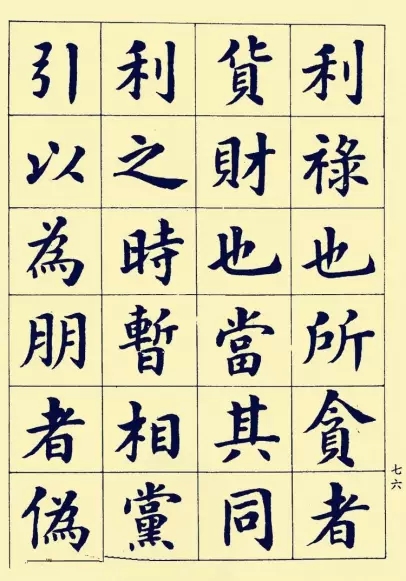 利祿也所貪者
貨財也當其同
利之時暫相黨
引以為朋者偽
七六